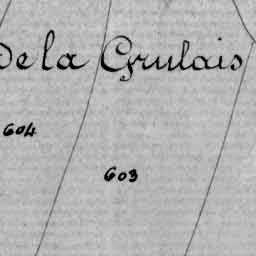 De la Grulais
604
603